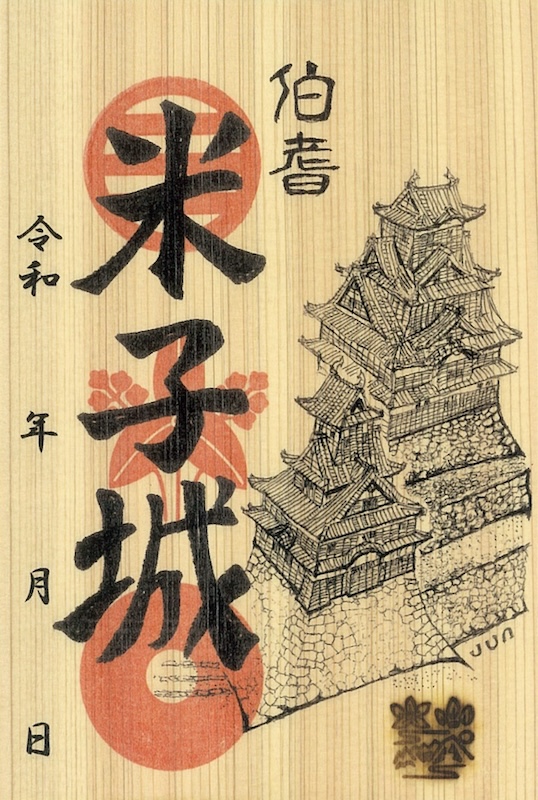 伯耆
米子城
令和 年 月 日
JUN